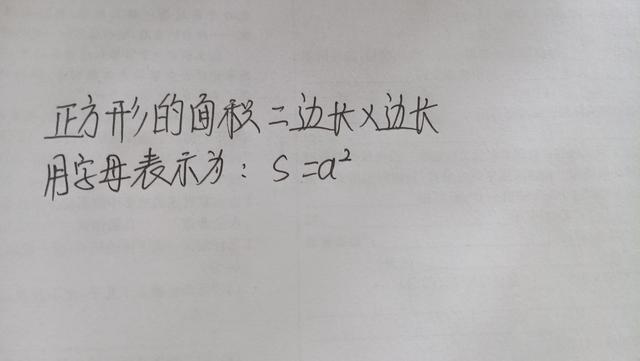 正方形的面积=边长×边长
用字母表示为：S=a²